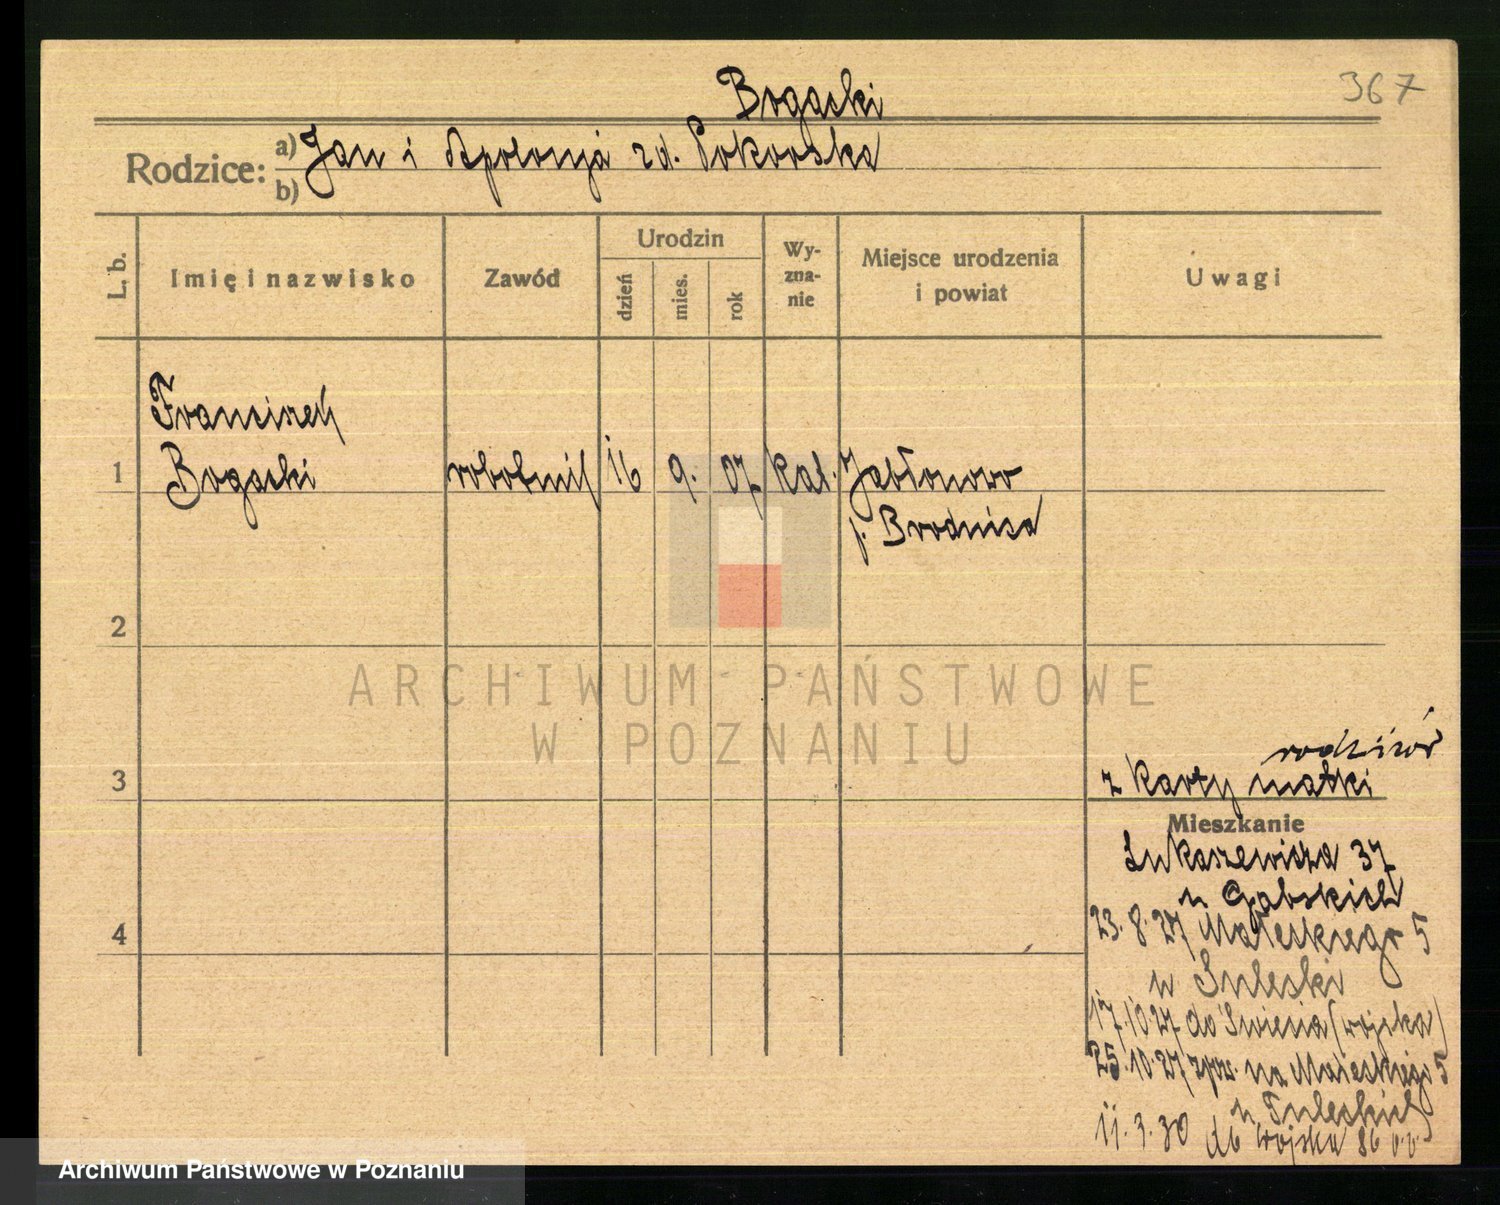 Bogacki
367
Rodzice:
a) Jan i Apolonja zd. Pokorska
b)
L. b.
Imię i nazwisko
Zawód
Urodzin
dzień
mies.
rok
Wy-
zna-
nie
Miejsce urodzenia
i powiat
Uwagi
Franciszek
1 Bogacki robotnik 16 9. 07 kat. Jabłonowo
p. Brodnica
2
ARCHIWUM PAŃSTWOWE
W POZNANIU
3
rodziców
z karty matki
Mieszkanie
Łukaszewicza 37
u Gąbskich
4
23.8.27 Małeckiego 5
u
17.10 27 do (wojska)
25.10.27 na Małeckiego 5
u
11.3.30 do wojska 86 p.p.
Archiwum Państwowe w Poznaniu